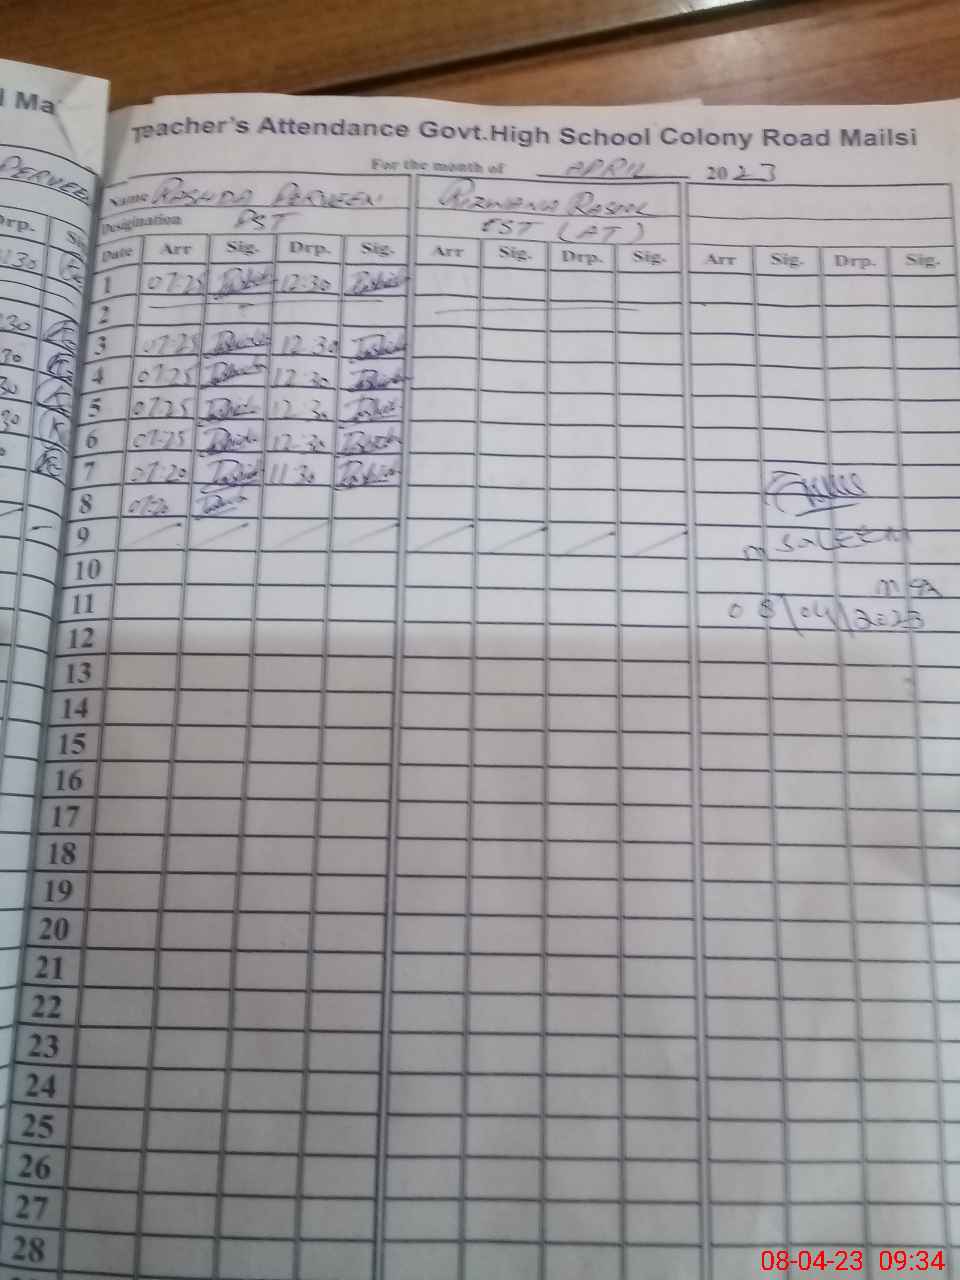 l Ma
Teacher's Attendance Govt.High School Colony Road Mailsi
For the month of APRIL 2023
PERVEEN
Name RASHIDA PERVEEN RIZWANA RASOOL
Designation PST EST (AT)
Drp. Sig
Date Arr Sig. Drp. Sig. Arr Sig. Drp. Sig. Arr Sig. Drp. Sig.
1 07:25 12:30
2
3 07:25 12:30
4 07:25 12:30
5 07:25 12:30
6 07:25 12:30
7 07:20 11:30
8 07:20
9
m SALEEM
10
MEA
11
08/04/2023
12
13
14
15
16
17
18
19
20
21
22
23
24
25
26
27
28
08-04-23 09:34